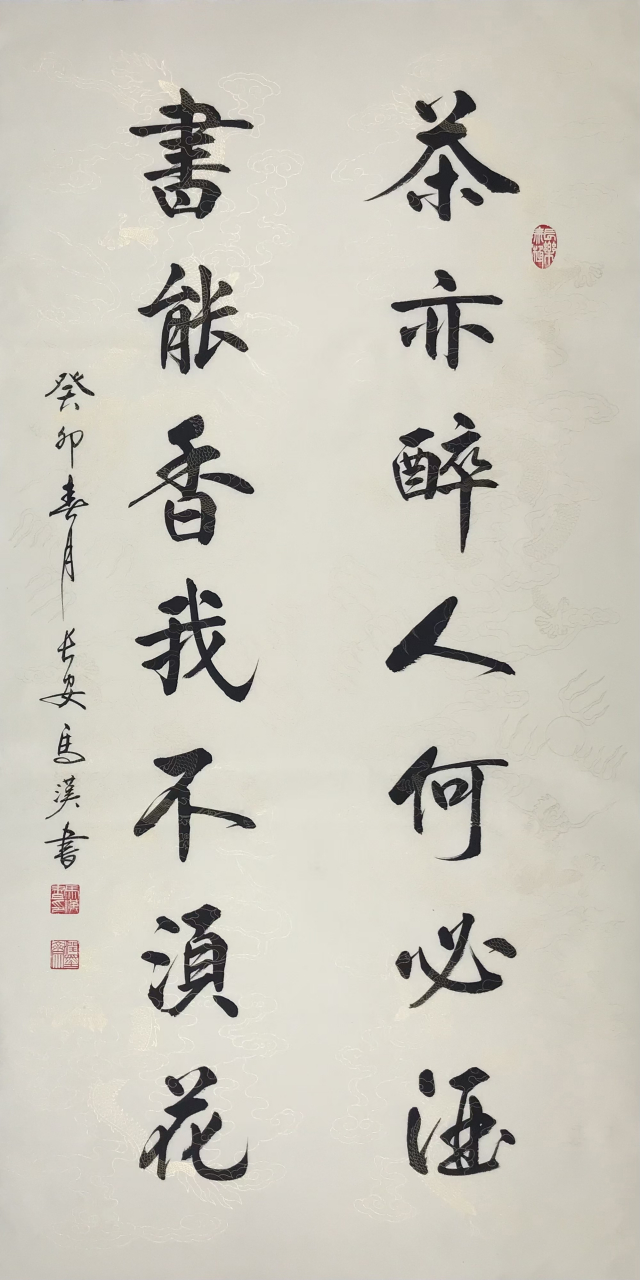 茶亦醉人何必酒
書能香我不須花
癸卯春月長安馬漢書